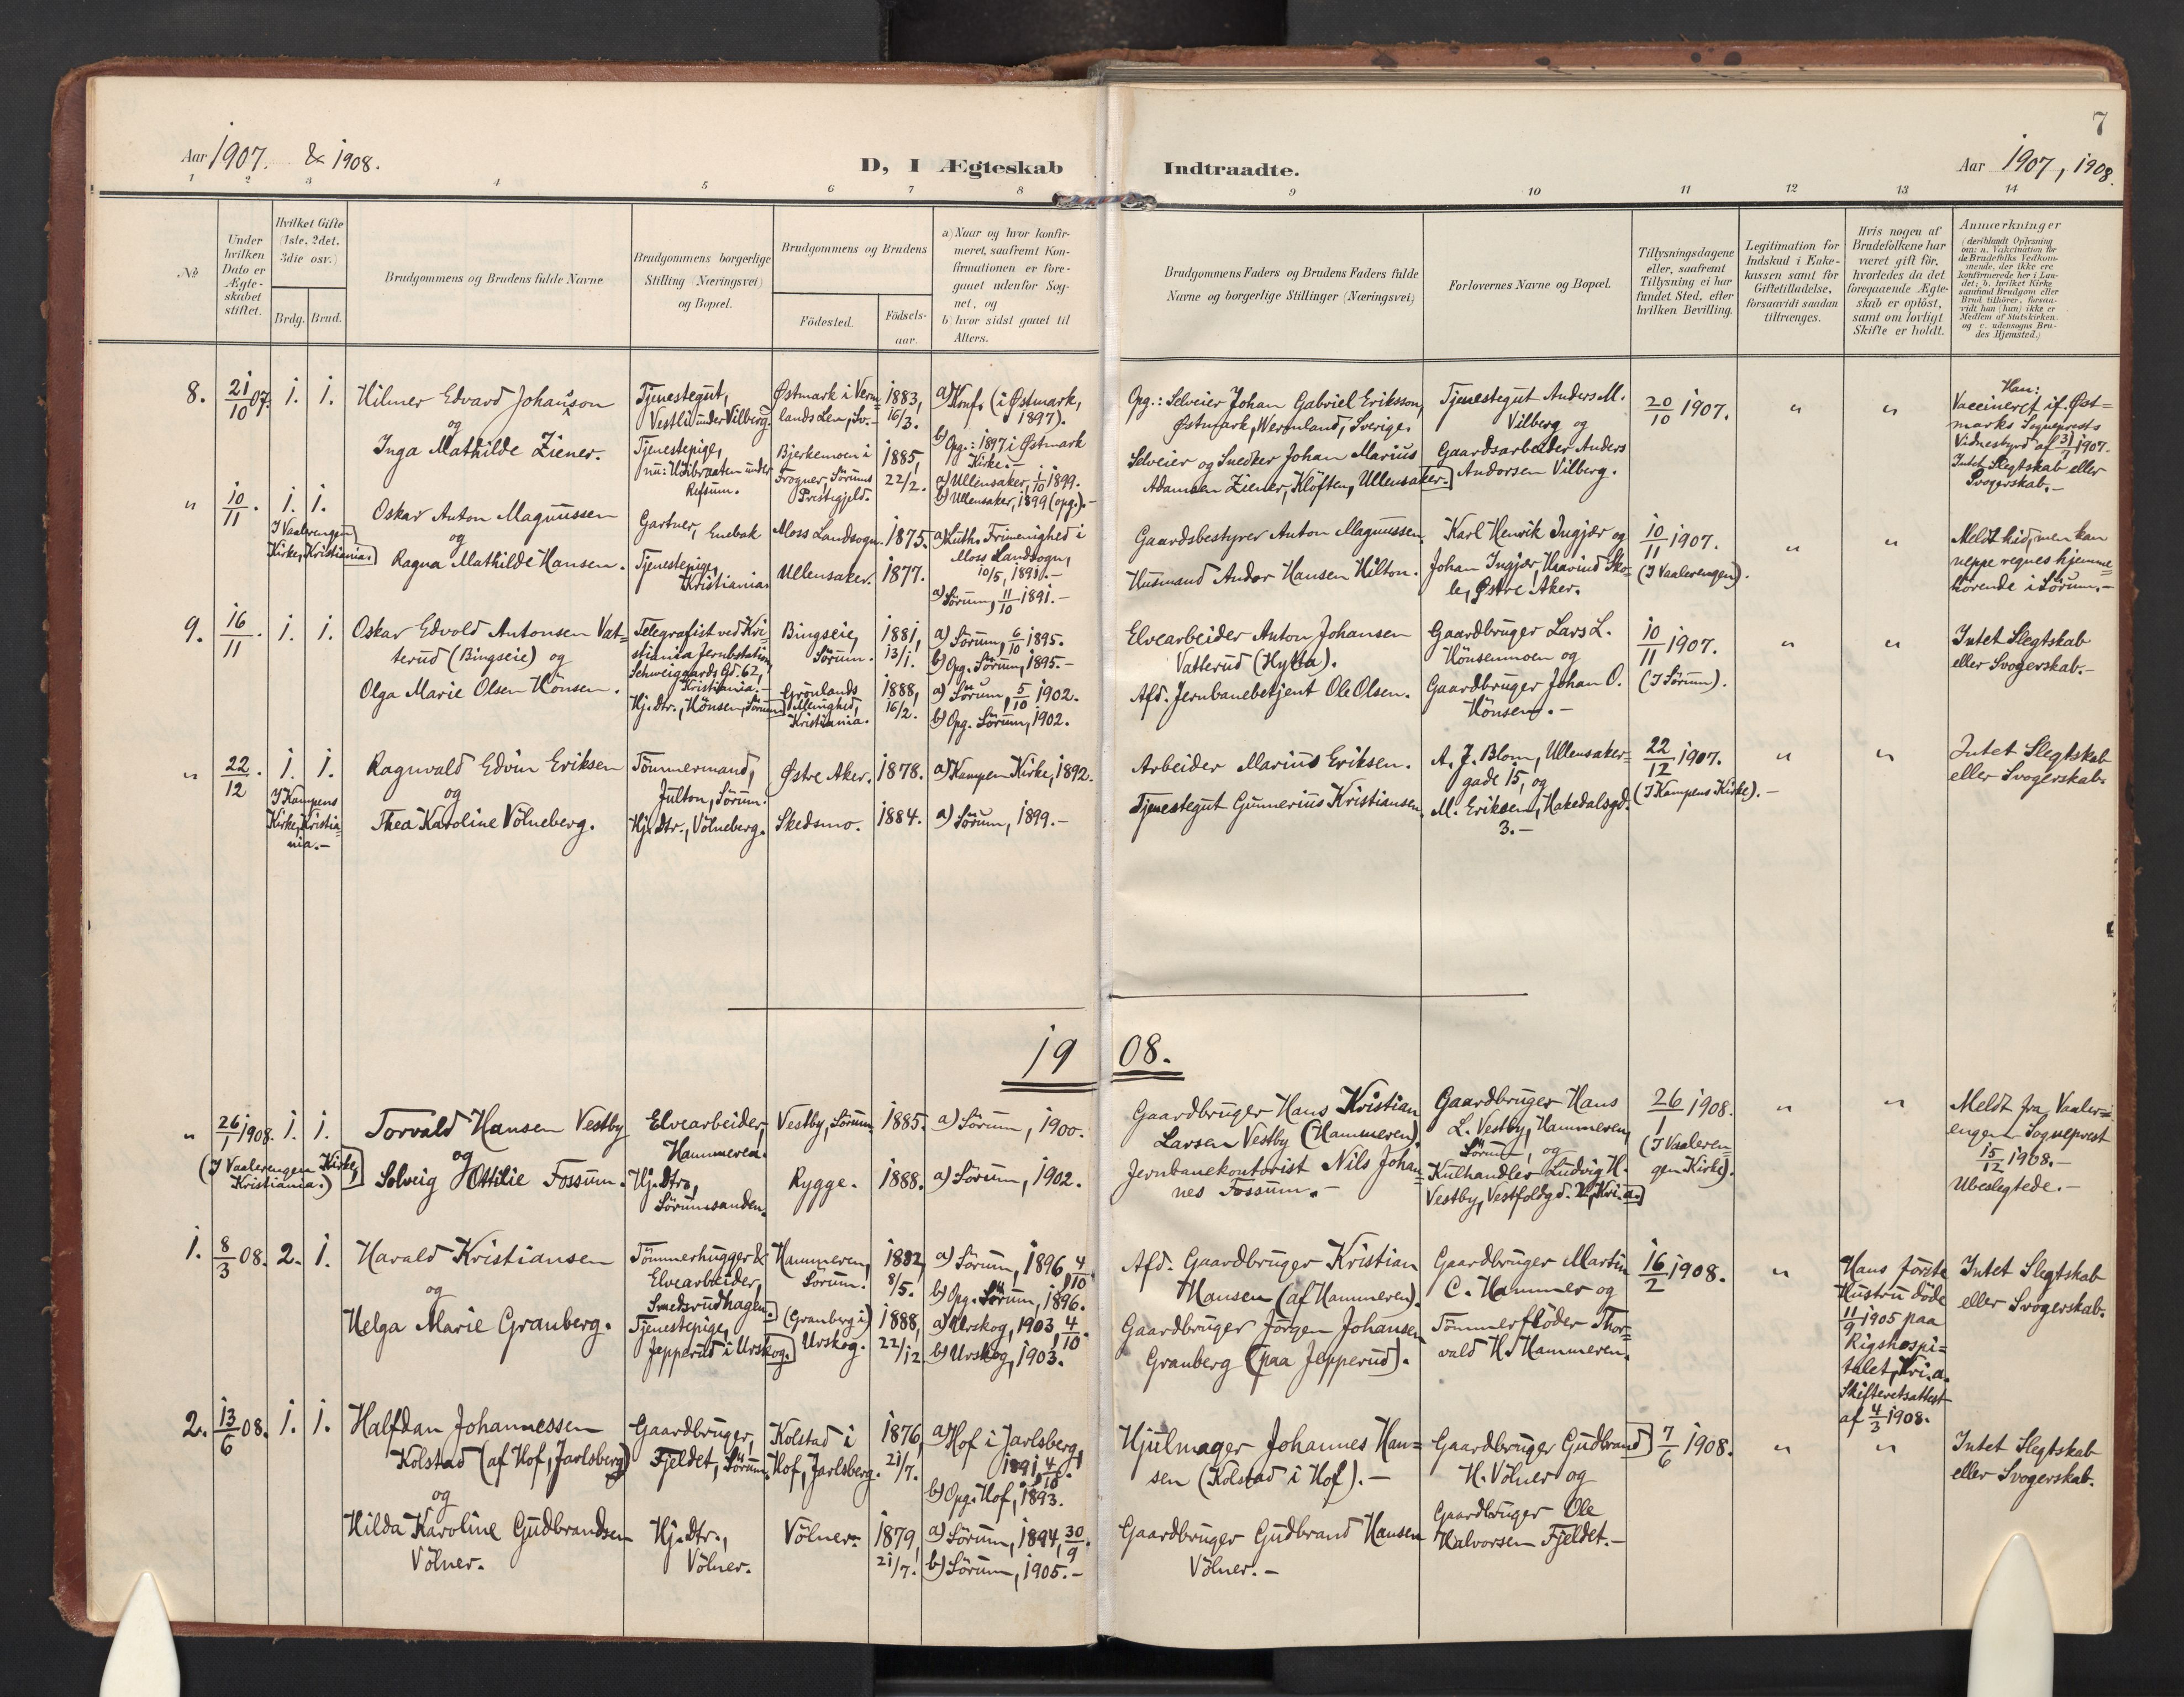 Aar 1907. & 1908.
D, I Ægteskab
Indtraadte.
Aar 1907, 1908.
7
1 2 3 4 5 6 7 8 9 10 11 12 13 14
No
Under hvilken Dato er Ægte-skabet stiftet.
Hvilket Gifte (1ste, 2det, 3die osv.)
Brdg. Brud.
Brudgommens og Brudens fulde Navne
Brudgommens borgerlige Stilling (Næringsvei) og Bopæl.
Brudgommens og Brudens
Födested.
Födsels-aar.
a) Naar og hvor konfir-meret, saafremt Kon-firmationen er fore-gaaet udenfor Sog-net, og
b) hvor sidst gaaet til Alters.
Brudgommens Faders og Brudens Faders fulde Navne og borgerlige Stillinger (Næringsvei)
Forlovernes Navne og Bopæl.
Tillysningsdagene eller, saafremt Tillysning ei har fundet Sted, efter hvilken Bevilling.
Legitimation for Indskud i Enke-kassen samt for Giftetilladelse, forsaavidt saadan tiltrænges.
Hvis nogen af Brudefolkene har været gift för, hvorledes da det foregaaende Ægte-skab er oplöst, samt om lovligt Skifte er holdt.
Anmærkninger
(deriblandt Oplysning om: a. Vakcination for de Brudefolks Vedkom-mende, der ikke ere konfirmerede her i Lan-det; b. hvilket Kirke-samfund Brudgom eller Brud tilhörer, forsaa-vidt han (hun) ikke er Medlem af Statskirken og c. udensogns Bru-des Hjemsted.)
8. 21/10 07. 1. 1.
Hilmer Edvard Johansson
og
Inga Mathilde Ziener.
Tjenestegut,
Vestli under Vilberg.
Tjenestepige,
Refsum.
Østmark i Verm-
lands Len, Sv.-
Bjerkemoen i
Frogner, Sörums
Prestegjeld.
1883, 16/3.
1885, 22/2.
a) Konf. (i Østmark, 1897).
b) Opg.: 1897 i Østmark Kirke.-
a) Ullensaker, 1/10 1899.
b) Ullensaker, 1899 (opg.).-
Opg.: Selveier Johan Gabriel Eriksson,
Østmark, Wermland, Sverige.
Selveier og Snedker Johan Marius
Adamsen Ziener, Klöften, Ullensaker.
Tjenestegut Anders M.
Vilberg og
Gaardsarbeider Anders
Andorsen Vilberg.
20/10 1907.
" "
Han:
Vaccineret if. Øst=
marks Sogneprests
Vidnesbyrd af 31/1 1907.
Intet Slegtskab eller
Svogerskab.-
" 10/11. 1. 1.
I Vaalerengen
Kirke, Kristiania.
Oskar Anton Magnussen
og
Ragna Mathilde Hansen.
Gartner, Enebak
Tjenestepige,
Kristiania.
Moss Landsogn.
Ullensaker.
1875.
1877.
a) Luth. Frimenighed i
Moss Landsogn,
10/5, 1891.-
a) Sörum, 11/10 1891.-
Gaardsbestyrer Anton Magnussen.
Husmand Andor Hansen Hilton.
Karl Henrik Ingjer og
Johan Ingjer, Haavind Sko-
le, Østre Aker.
10/11 1907.
(I Vaalerengen).
" "
Meldt hid, men kan
neppe regnes hjemme=
hörende i Sörum.-
9. 16/11. 1. 1.
Oskar Edvold Antonsen Vat=
terud (Bingseie) og
Olga Marie Olsen Hönsen.
Telegrafist ved Kri-
stiania Jernbstation,
Schweigaards Gd. 62,
Kristiania.-
Hj. Dtr., Hönsen, Sörum
Bingseie,
Sörum.
Grönlands
Menighed,
Kristiania.
1881, 13/1.
1888, 16/2.
a) Sörum, 6/10 1895.
b) Opg. Sörum, 1895.-
a) Sörum, 5/10 1902.
b) Opg. Sörum, 1902.
Elvearbeider Anton Johansen
Vatterud (Hytta).
Afd. Jernbanebetjent Ole Olsen.
Gaardbruger Lars L.
Hönsenmoen og
Gaardbruger Johan O.
Hönsen.-
10/11 1907.
(I Sörum).
" "
Intet Slegtskab
eller Svogerskab.-
" 22/12. 1. 1.
I Kampens
Kirke, Kristia-
nia.-
Ragnvald Edvin Eriksen
og
Thea Karoline Völneberg.
Tömmermand,
Julton, Sörum.
Hj. Dtr., Völneberg.
Østre Aker.
Skedsmo.
1878.
1884.
a) Kampen Kirke, 1892.
a) Sörum, 1899.-
Arbeider Marius Eriksen.
Tjenestegut Gunnerius Kristiansen.
A. J. Blom, Ullensaker-
gade 15, og
M. Eriksen, Hakedalsgd.
3.-
22/12 1907.
(I Kampens Kirke).-
" "
Intet Slegtskab
eller Svogerskab.
1908.
" 26/1 1908. 1. 1.
(I Vaalerengen Kirke,
Kristiania.)
Torvald Hansen Vestby
og
Solveig Ottilie Fossum.
Elvearbeider,
Hammeren.
Hj. Dtr.,
Sörumsanden.
Vestby, Sörum.
Rygge.
1885.
1888.
a) Sörum, 1900.
a) Sörum, 1902.
Gaardbruger Hans Kristian
Larsen Vestby (Hammeren).
Jernbanekontorist Nils Johan=
nes Fossum.-
Gaardbruger Hans
L. Vestby, Hammeren,
Sörum, og
Kulhandler Ludvig H.
Vestby, Vestfoldgd. 2, Kri.a.
26/1 1908.
(I Vaaleren-
gen Kirke).
" "
Meldt fra Vaaler=
engen Sogneprest
15/12 1908.-
Ubeslegtede.-
1. 8/3 08. 2. 1.
Harald Kristiansen
og
Helga Marie Granberg.
Tömmerhugger &
Elvearbeider,
Smedsrudhagen.
Tjenestepige,
Jepperud i Urskog.
Hammeren,
Sörum.
(Granberg i)
Urskog.
1882, 8/5.
1888, 22/12
a) Sörum, 1896, 4/10.
b) Opg. Sörum, 1896.
a) Urskog, 1903, 4/10.
b) Urskog, 1903.
Afd. Gaardbruger Kristian
Hansen (af Hammeren).
Gaardbruger Jörgen Johansen
Granberg (paa Jepperud).
Gaardbruger Martin
C. Hammer og
Tömmerflöder Thor=
vald H. Hammeren.
16/2 1908.
"
Hans förste
Hustru döde
11/9 1905 paa
Rigshospi=
talet, Kri.a.
Skifteretsattest
af 4/3 1908.
Intet Slegtskab
eller Svogerskab.
2. 13/6 08. 1. 1.
Halfdan Johannessen
Kolstad (af Hof, Jarlsberg)
og
Hilda Karoline Gudbrandsen
Völner.
Gaardbruger,
Fjeldet, Sörum.
Hj. Dtr.,
Völner.
Kolstad i
Hof, Jarlsberg.
Völner.
1876, 21/7.
1879, 21/7.
a) Hof i Jarlsberg,
1891, 4/10.
b) Opg. Hof, 1893.
a) Sörum, 1894, 30/9.
b) Sörum, 1905.-
Hjulmager Johannes Han=
sen (Kolstad i Hof).-
Gaardbruger Gudbrand Hansen
Völner.-
Gaardbruger Gudbrand
H. Völner og
Gaardbruger Ole
Halvorsen Fjeldet.-
7/6 1908.
" "
Intet Slegtskab
eller Svogerskab.